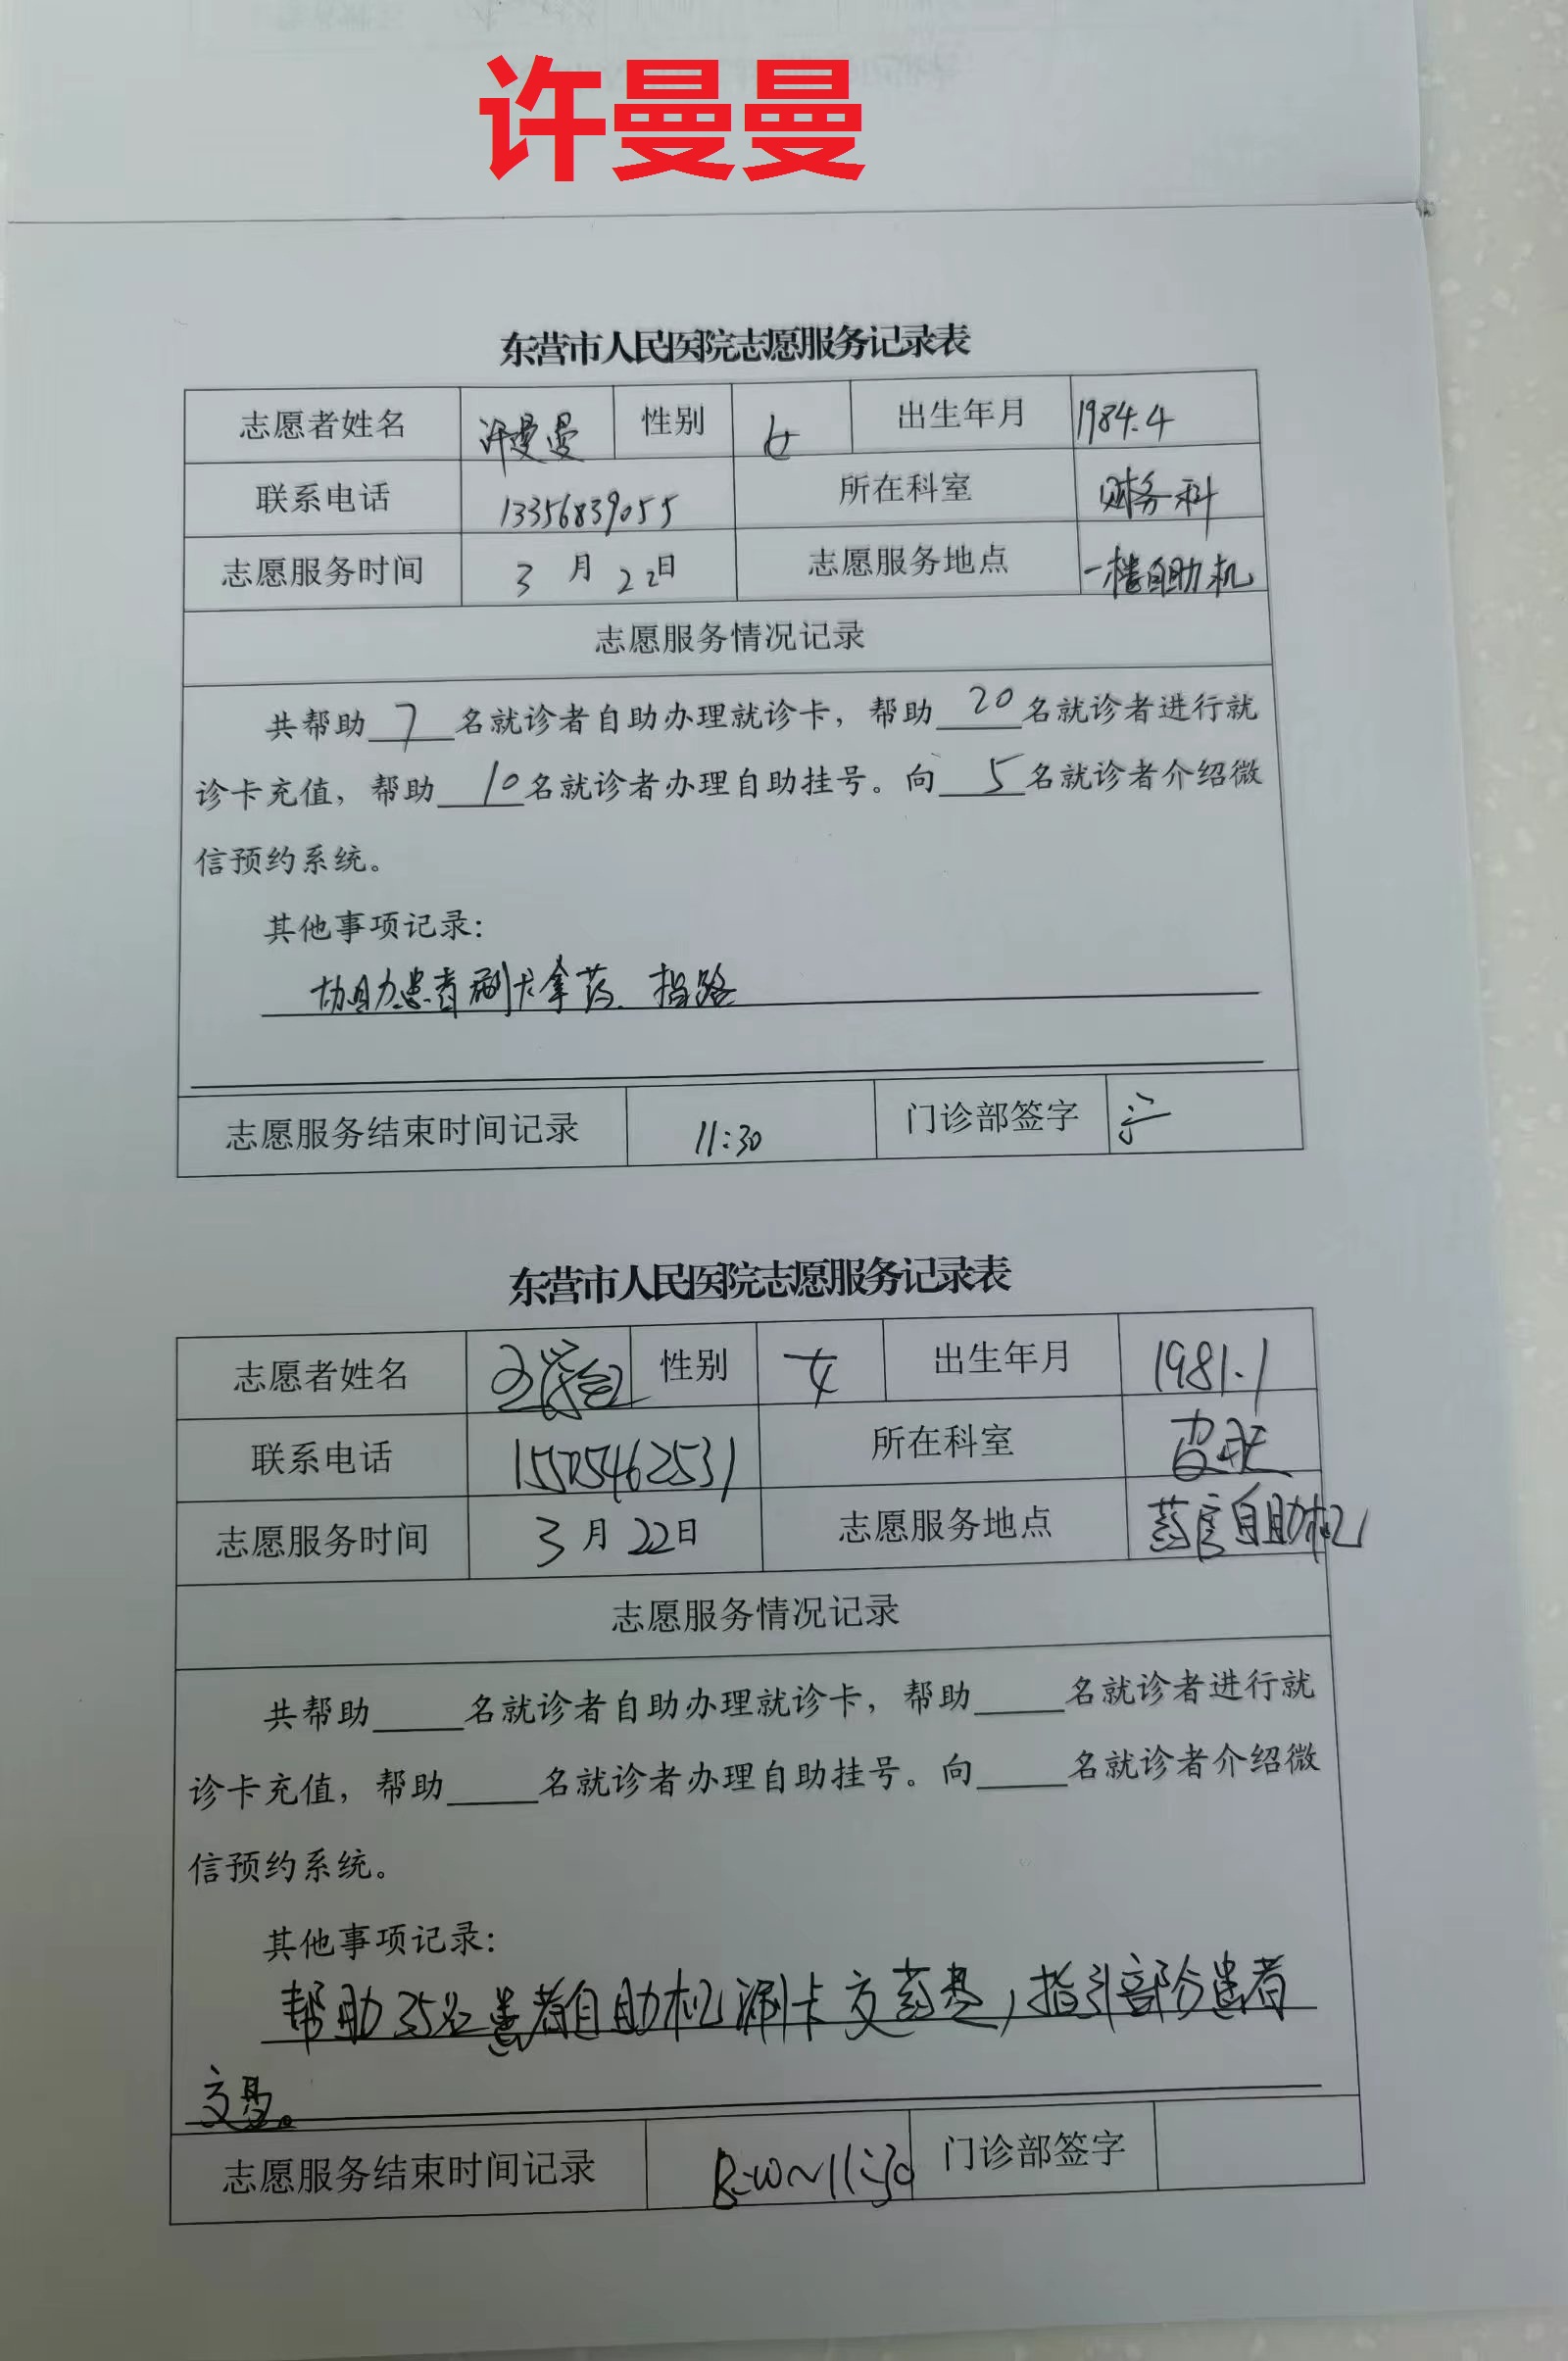 许曼曼
东营市人民医院志愿服务记录表
志愿者姓名 许曼曼 性别 女 出生年月 1984.4
联系电话 13356839055 所在科室 财务科
志愿服务时间 3月22日 志愿服务地点 一楼自助机
志愿服务情况记录
共帮助7名就诊者自助办理就诊卡，帮助20名就诊者进行就
诊卡充值，帮助10名就诊者办理自助挂号。向5名就诊者介绍微
信预约系统。
其他事项记录：
协助患者刷卡拿药、指路
志愿服务结束时间记录 11:30 门诊部签字
东营市人民医院志愿服务记录表
志愿者姓名 性别 女 出生年月 1981.1
联系电话 15505462531 所在科室
志愿服务时间 3月22日 志愿服务地点 药房自助机
志愿服务情况记录
共帮助____名就诊者自助办理就诊卡，帮助____名就诊者进行就
诊卡充值，帮助____名就诊者办理自助挂号。向____名就诊者介绍微
信预约系统。
其他事项记录：
帮助35名患者自助机刷卡交药费，指引部分患者
交费。
志愿服务结束时间记录 8:00~11:30 门诊部签字